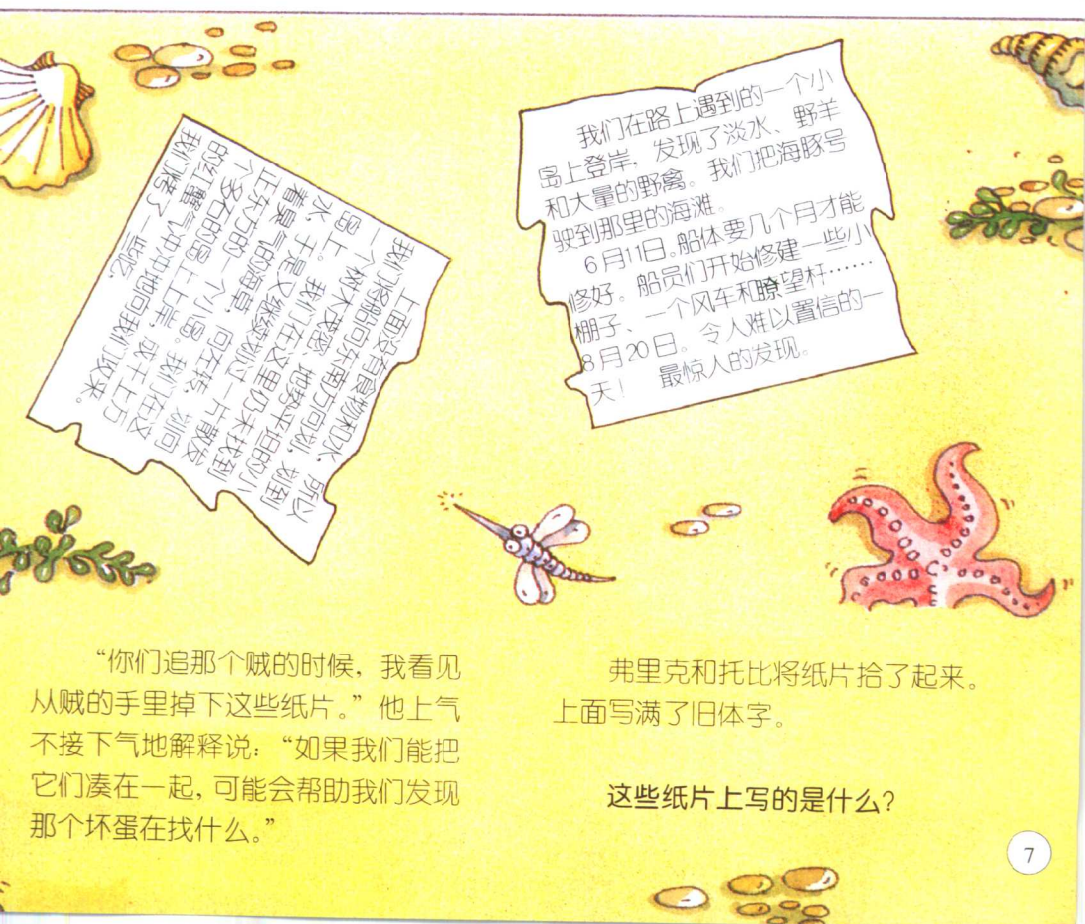 上面没有食物和水，所以
我们将船向东南方向划，划到
一个树木茂密、地势平坦的小
岛上。我们在这里仍未找到
水，于是又继续划过一片散发
着臭气的海草，向左转，划向
正东方的一个小岛。我们在这
个多石的岛上上岸，成千上万
的红蟹气冲冲地向我们扑来。
我们烤了一些吃。
我们在路上遇到的一个小
岛上登岸，发现了淡水、野羊
和大量的野禽。我们把海豚号
驶到那里的海滩。
6月11日。船体要几个月才能
修好。船员们开始修建一些小
棚子、一个风车和瞭望杆……
8月20日。令人难以置信的一
天！ 最惊人的发现。
“你们追那个贼的时候，我看见
从贼的手里掉下这些纸片。”他上气
不接下气地解释说：“如果我们能把
它们凑在一起，可能会帮助我们发现
那个坏蛋在找什么。”
弗里克和托比将纸片拾了起来。
上面写满了旧体字。
这些纸片上写的是什么？
7